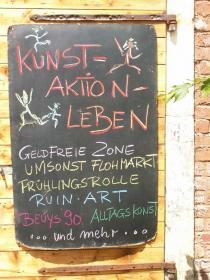 KUNST-
AKTION-
LEBEN
GELDFREIE ZONE
UMSONST FLOHMARKT
FRÜHLINGSROLLE
RUIN·ART
BEUYS 90 ALLTAGSKUNST
... und mehr...